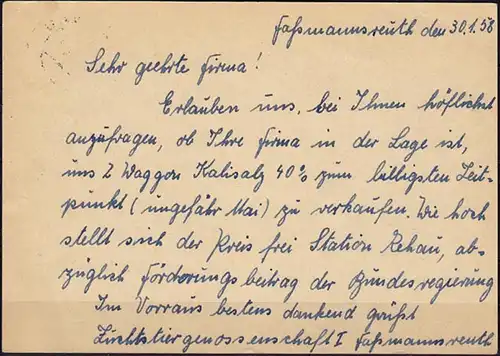 Faßmannsreuth den 30.1.58
Sehr geehrte Firma!
Erlauben uns, bei Ihnen höflichst
anzufragen, ob Ihre Firma in der Lage ist,
uns 2 Waggon Kalisalz 40% zum billigsten Zeit-
punkt (ungefähr Mai) zu verkaufen. Wie hoch
stellt sich der Preis frei Station Rehau, ab-
züglich Förderungsbeitrag der Bundesregierung
Im Vorraus bestens dankend grüßt
Zuchtstiergenossenschaft I Faßmannsreuth